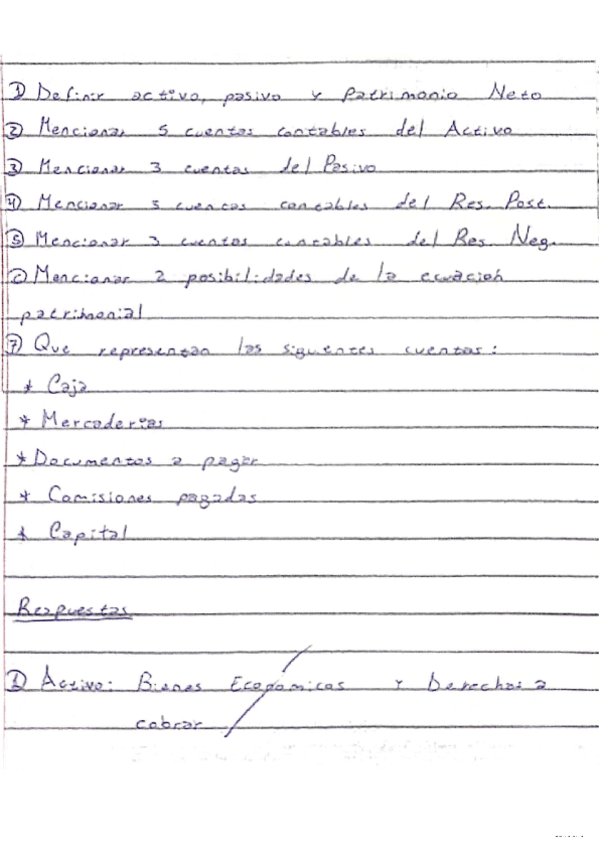 ① Definir activo, pasivo y Patrimonio Neto
② Mencionar 5 cuentas contables del Activo
③ Mencionar 3 cuentas del Pasivo
④ Mencionar 3 cuentas contables del Res. Post.
⑤ Mencionar 3 cuentas contables del Res. Neg.
⑥ Mencionar 2 posibilidades de la ecuación
patrimonial
⑦ Que representan las siguientes cuentas:
* Caja
* Mercaderias
* Documentos a pagar
* Comisiones pagadas
* Capital
Respuestas
① Activo: Bienes Económicos y Derechos a
cobrar